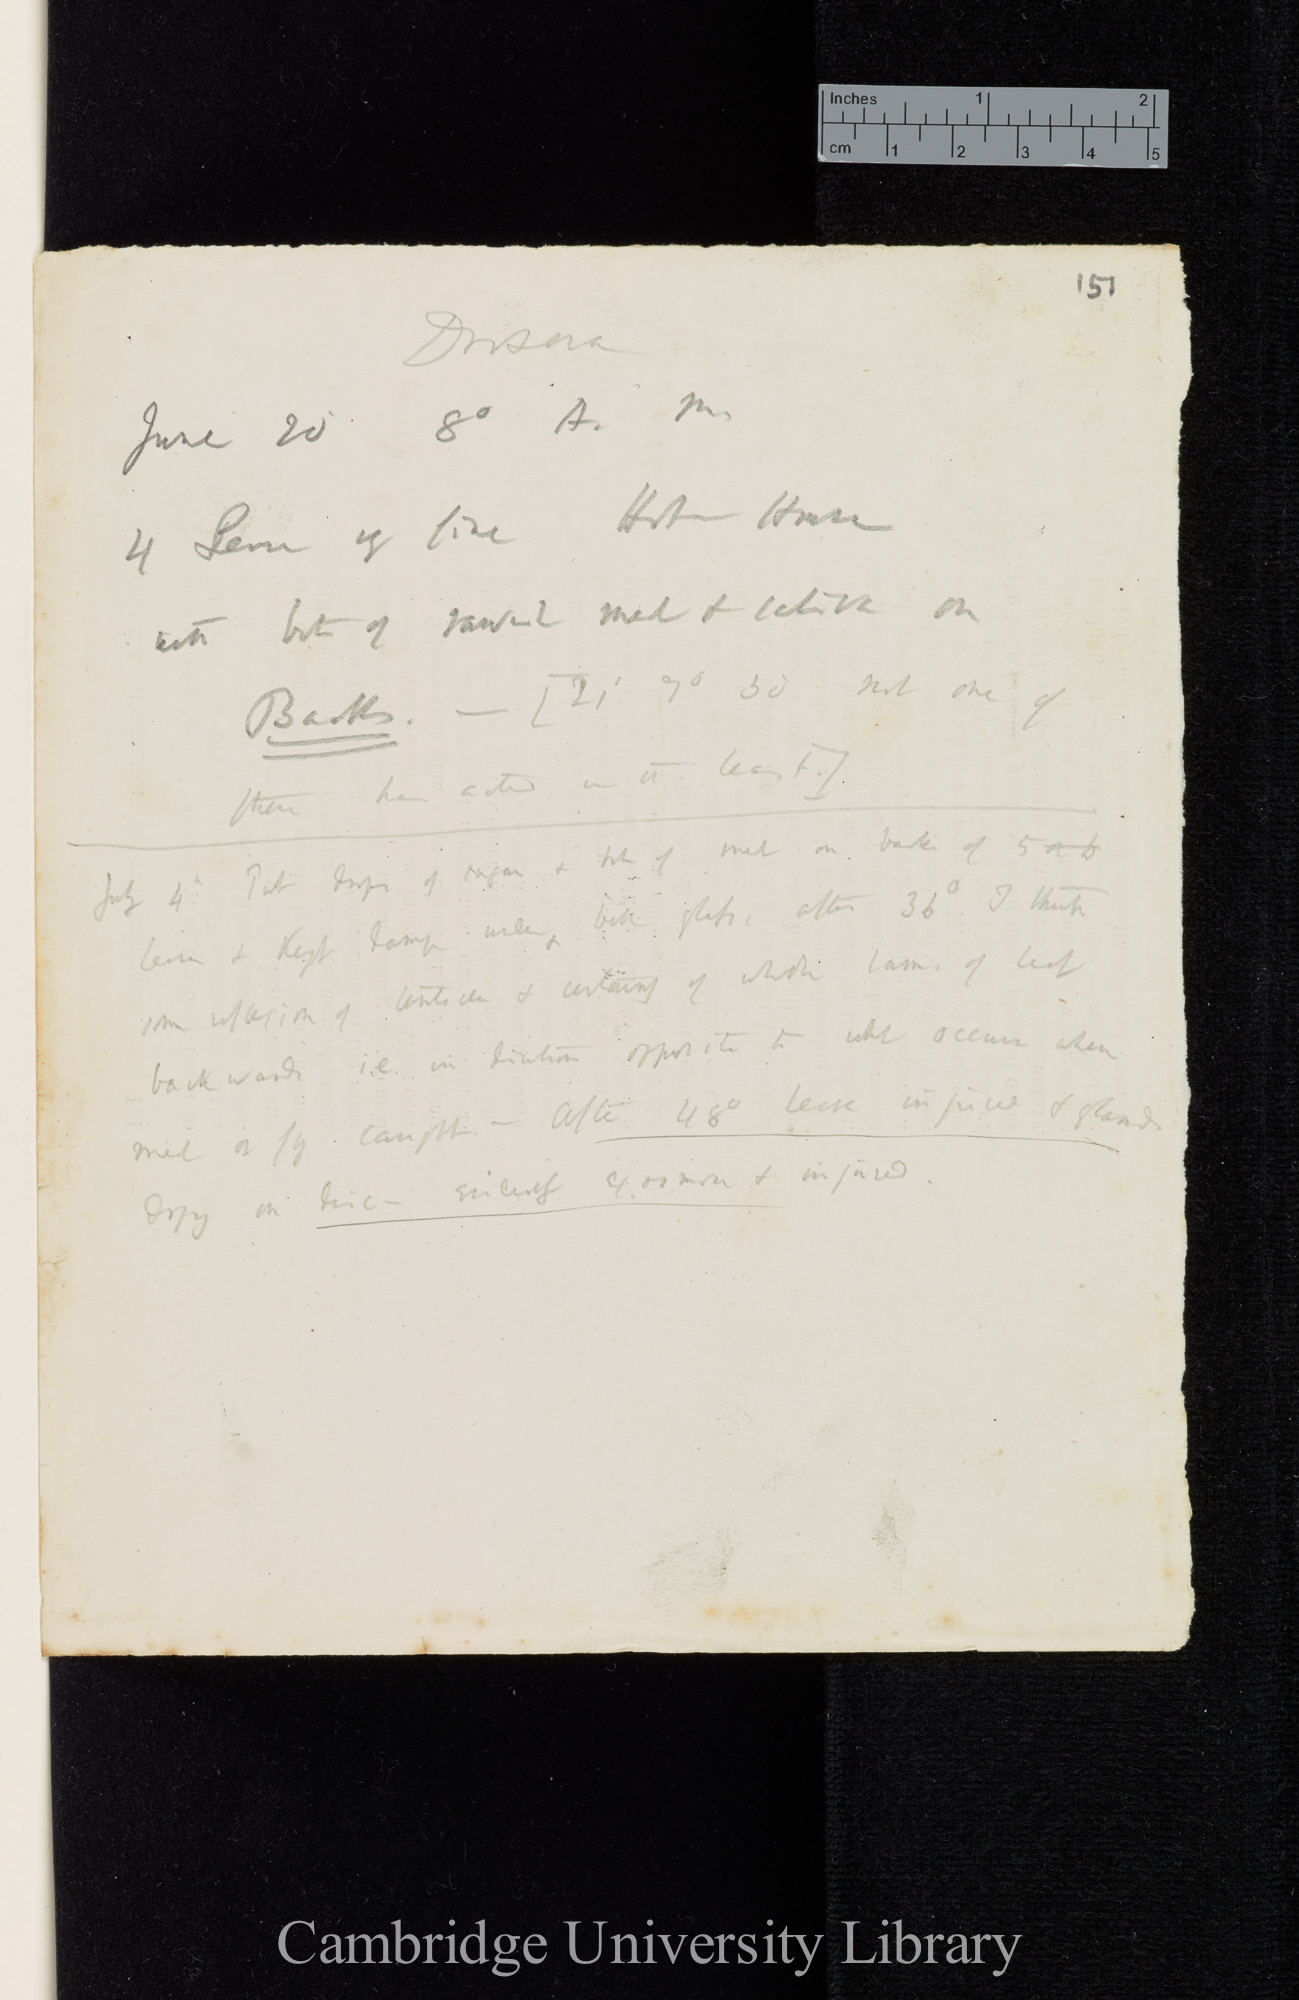 Inches 1 2
cm 1 2 3 4 5
151
Drosera
June 20 8° A. M.
4 Leaves of fine Hot House
with bits of raw meat & saliva on
Backs. — [21' 7° 30 not one of
these has acted in the least.]
July 4th Put drops of sugar & bits of meat on backs of 5 or 6
leaves & kept damp under bell glass, after 36° I think
some reflexion of tentacles & certainly of whole lamina of leaf
backwards i.e. in direction opposite to what occurs when
meat or fly caught — After 48° leaves injured & glands
dry on disc — evidently exosmose & injured.
Cambridge University Library